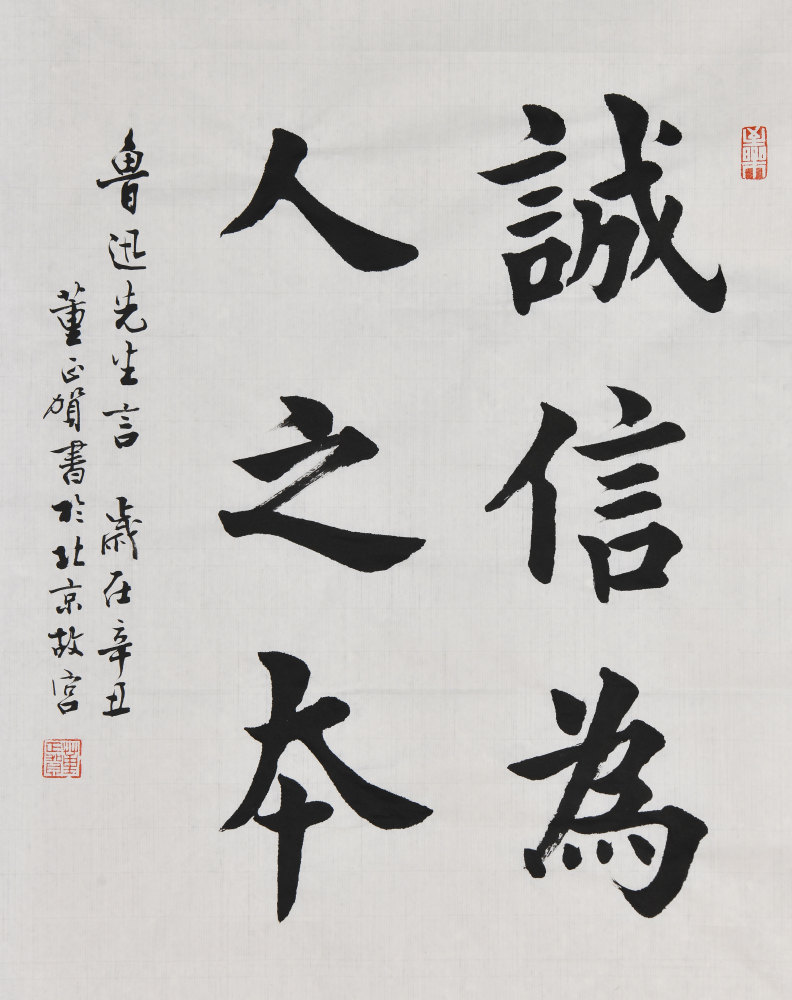 誠信為
人之本
魯迅先生言 歲在辛丑
董正賀書於北京故宮